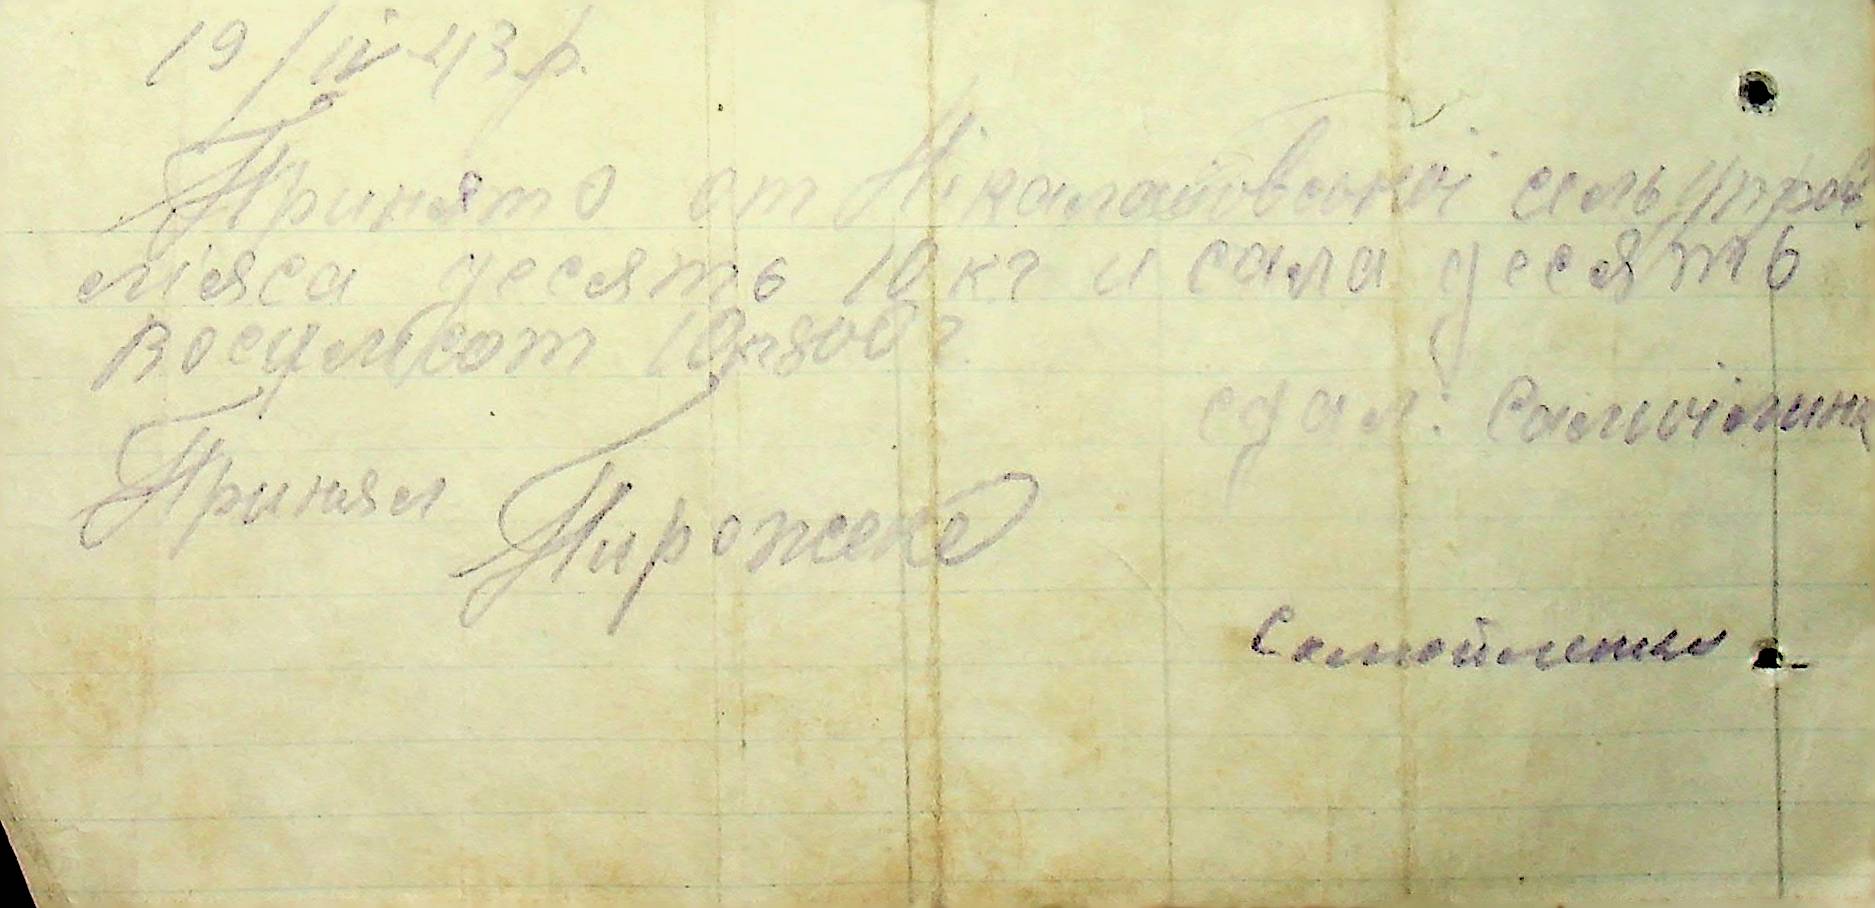 19/IV 43 р.
Принято от Нікалаївської сель управ
мяса десять 10 кг и сала десять
восумсот 10кг 800 г
сдал:
Принял Пирожек
Самойленко